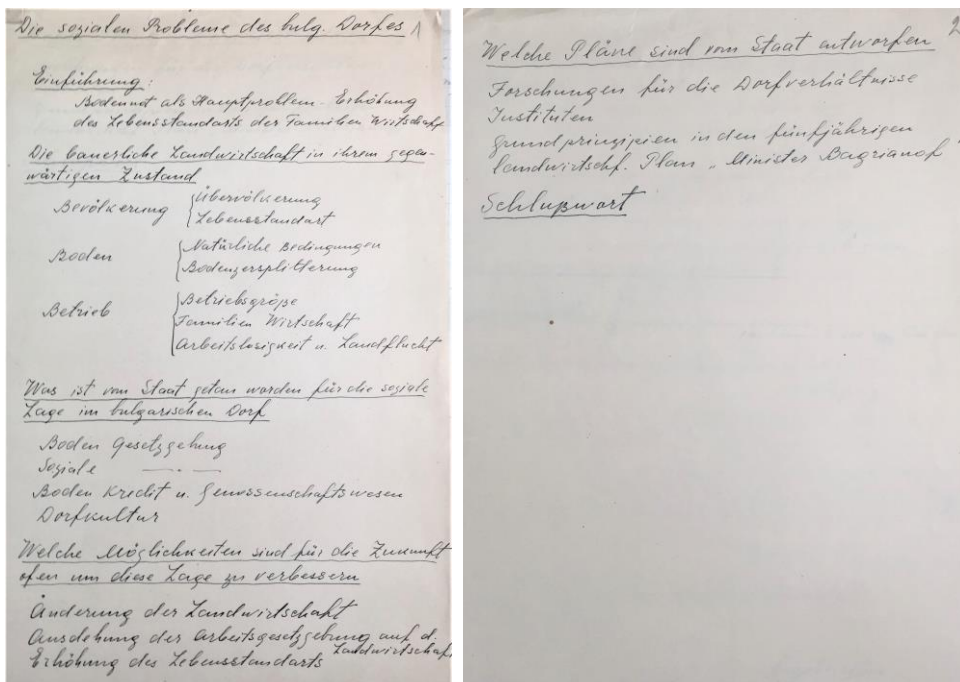 Die sozialen Probleme des bulg. Dorfes 1
Einführung:
Bodennot als Hauptproblem - Erhöhung
des Lebensstandarts der Familien Wirtschaft
Die bauerliche Landwirtschaft in ihrem gegen-
wärtigen Zustand
Bevölkerung { Übervölkerung
Lebensstandart
Boden { Natürliche Bedingungen
Bodenzersplitterung
Betrieb { Betriebsgröße
Familien Wirtschaft
Arbeitslosigkeit u. Landflucht
Was ist vom Staat getan worden für die soziale
Lage im bulgarischen Dorf
Boden Gesetzgebung
Soziale — . —
Boden Kredit u. Genossenschaftswesen
Dorfkultur
Welche Möglichkeiten sind für die Zukunft
ofen um diese Lage zu verbessern
Änderung der Landwirtschaft
Ausdehung der Arbeitsgesetzgebung auf d.
Landwirtschaf
Erhöhung des Lebensstandarts
2
Welche Pläne sind vom Staat entworfen
Forschungen für die Dorfverhältnisse
Instituten
Grundprinzipien in den fünfjährigen
landwirtschf. Plan „Minister Bagrianof"
Schlußwort